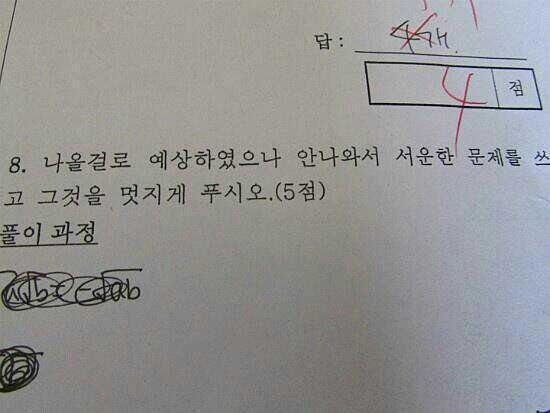 답 : 4개.
4 점
8. 나올걸로 예상하였으나 안나와서 서운한 문제를 쓰
고 그것을 멋지게 푸시오.(5점)
풀이 과정